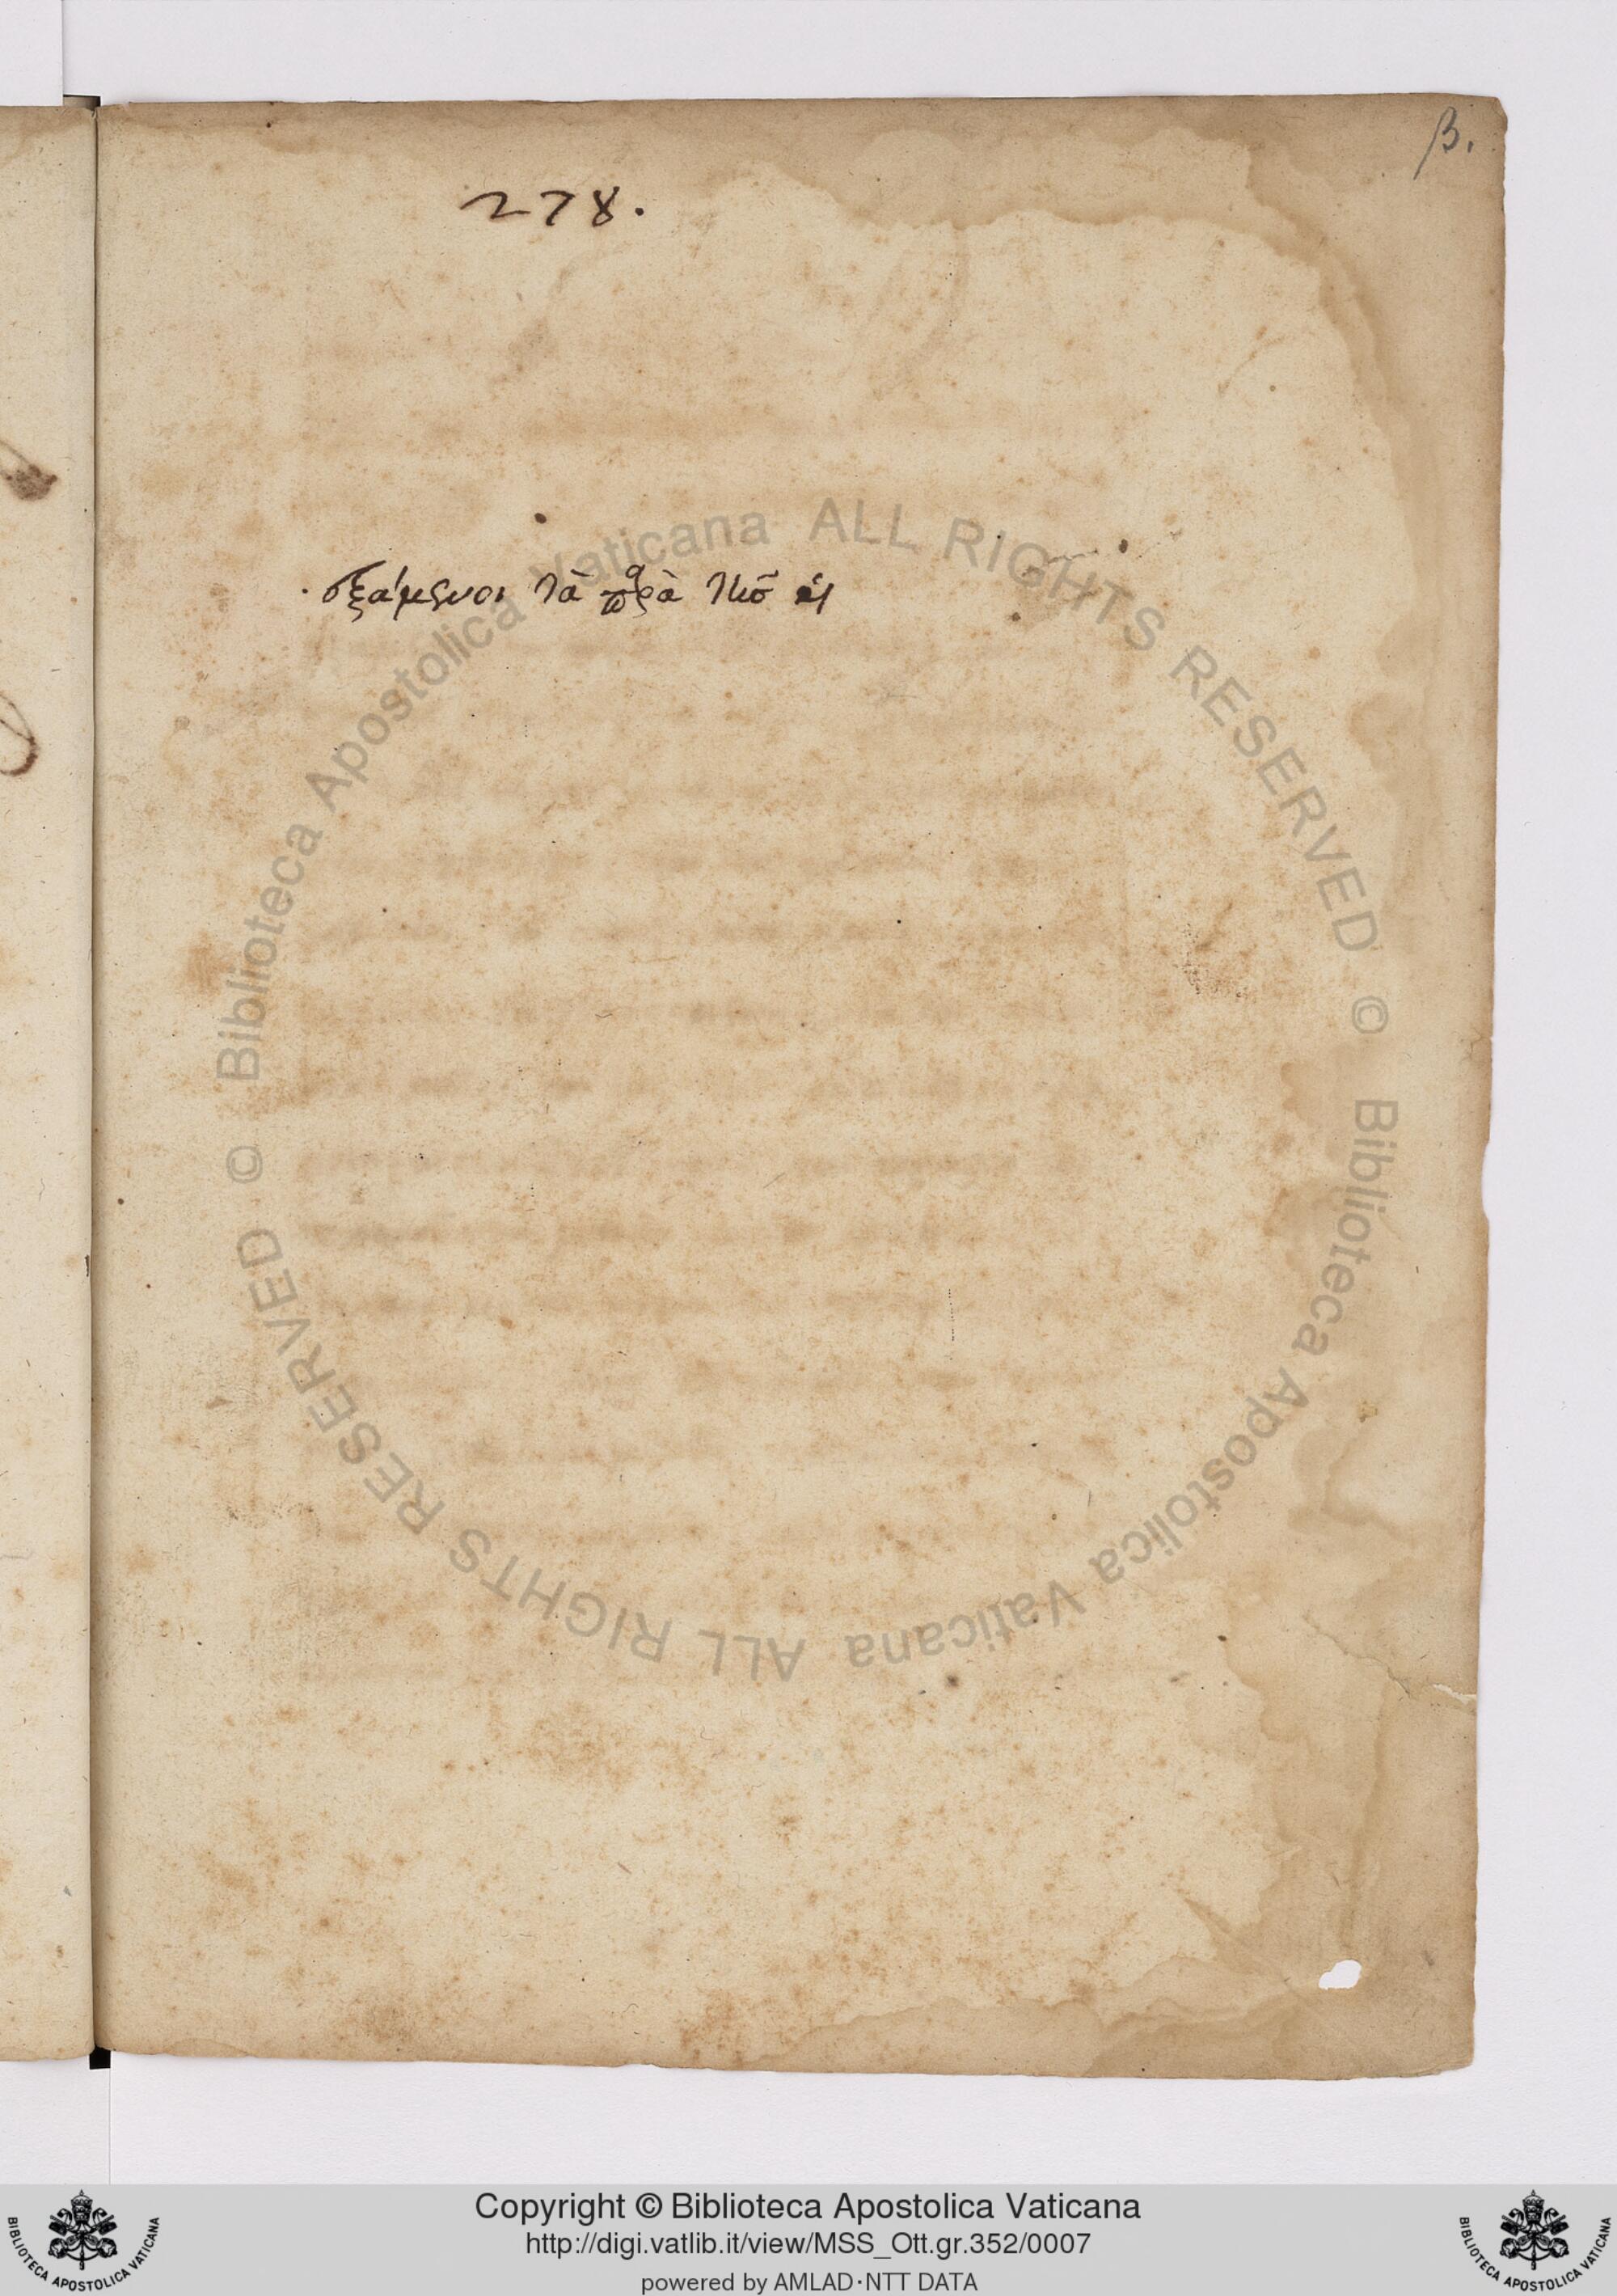 β.
278.
δεξάμενοι τὰ παρὰ
© Biblioteca Apostolica Vaticana ALL RIGHTS RESERVED © Biblioteca Apostolica Vaticana ALL RIGHTS RESERVED
Copyright © Biblioteca Apostolica Vaticana
http://digi.vatlib.it/view/MSS_Ott.gr.352/0007
powered by AMLAD·NTT DATA
BIBLIOTECA APOSTOLICA VATICANA
BIBLIOTECA APOSTOLICA VATICANA